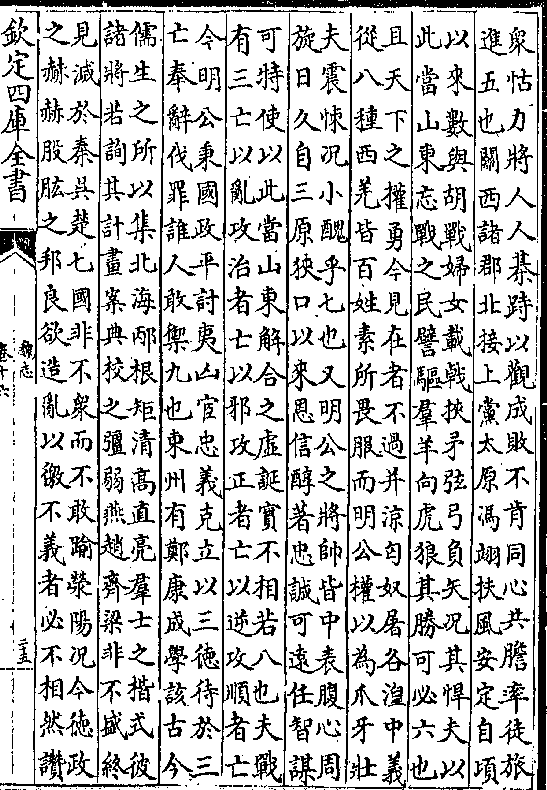 衆怙力將人人棊跱以觀成敗不肯同心共膽率徒旅
進五也關西諸郡北接上黨太原馮翊扶風安定自項
以來數與胡戰婦女載戟挾矛弦弓負矢況其悍夫以
此當山東忘戰之民譬驅羣羊向虎狼其勝可必六也
且天下之權勇今見在者不過并涼匈奴屠各湟中義
從八種西羌皆百姓素所畏服而明公權以為爪牙壯
夫震悚況小醜乎七也又明公之將帥皆中表腹心周
旋日久自三原狹口以來恩信醇著忠誠可遠任智謀
可特使以此當山東解合之虛誕實不相若八也夫戰
有三亡以亂攻治者亡以邪攻正者亡以逆攻順者亡
今明公秉國政平討夷凶宦忠義克立以三德待於三
亡奉辭伐罪誰人敢禦九也東州有鄭康成學該古今
儒生之所以集北海邴根矩清高直亮羣士之楷式彼
諸將若詢其計畫案典校之彊弱燕趙齊梁非不盛終
見滅於秦吳楚七國非不衆而不敢踰滎陽況今德政
之赫赫股肱之邦良欲造亂以徼不義者必不相然讚
欽定四庫全書
魏志
卷十六
二五